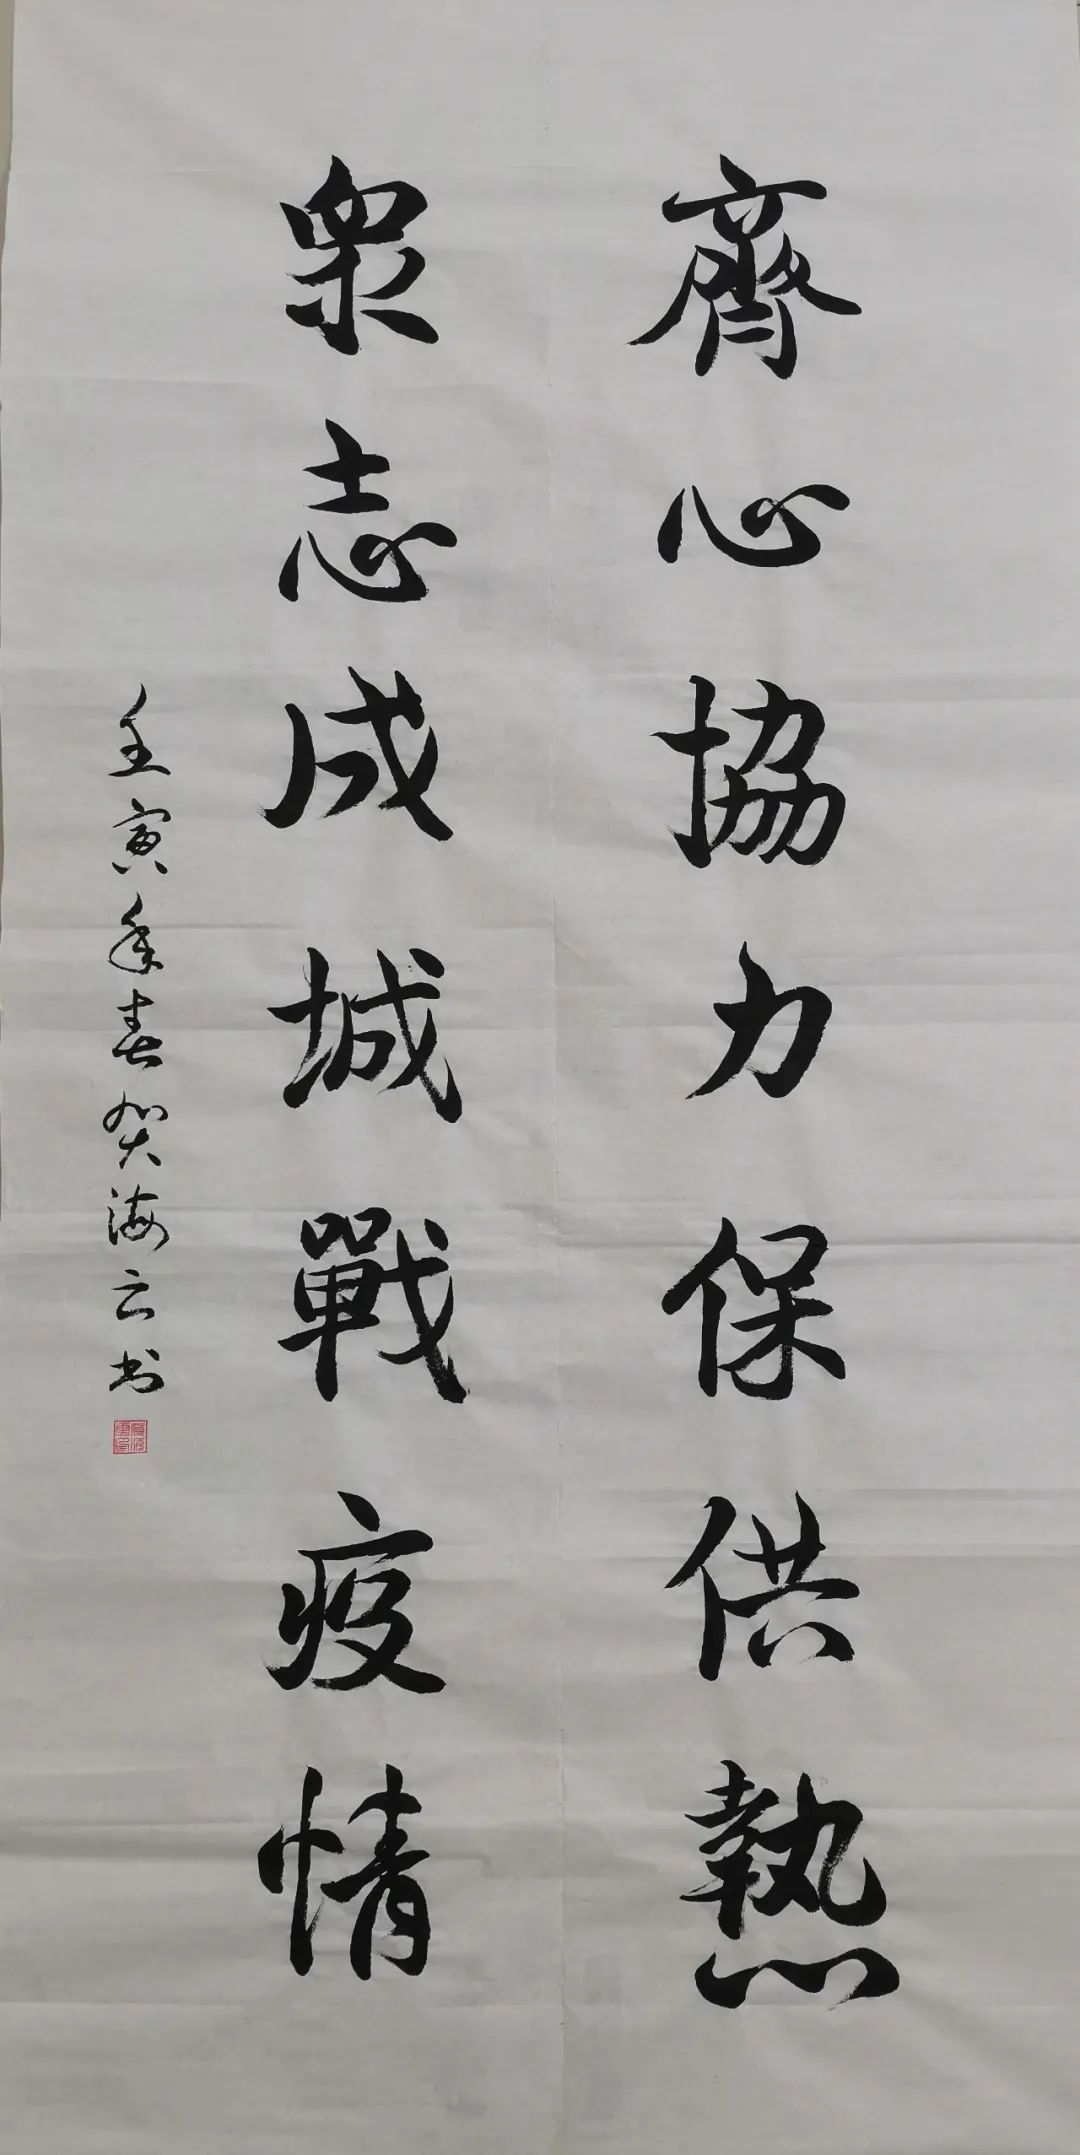 齊心協力保供熱
衆志成城戰疫情
壬寅年春賀海云书